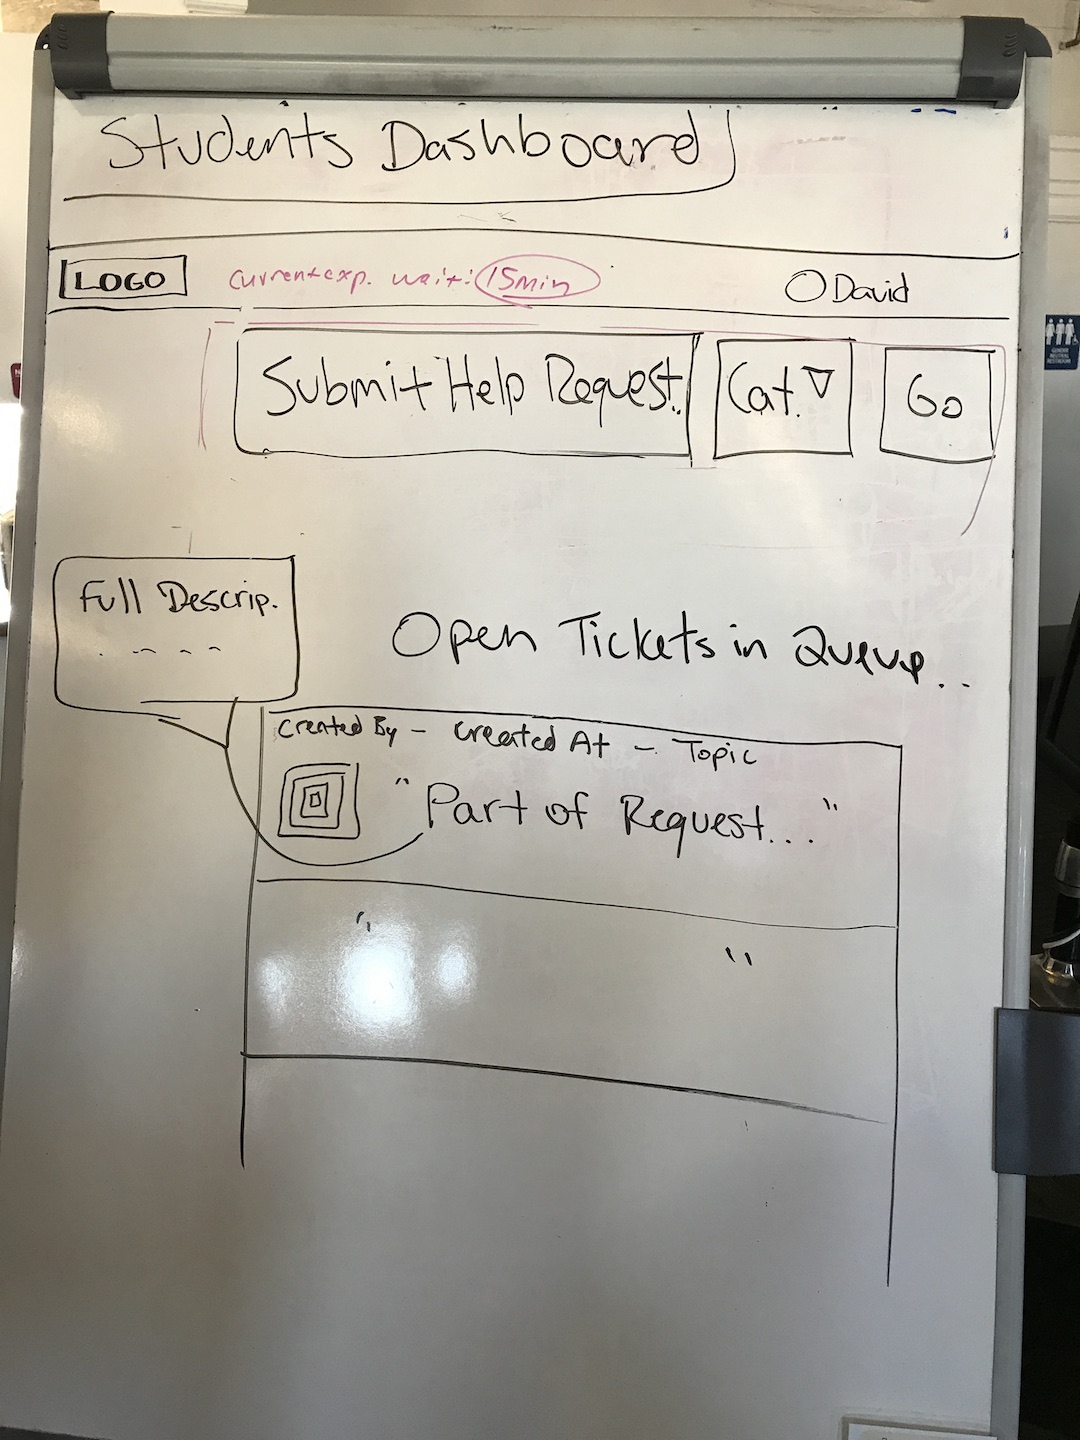 Students Dashboard
LOGO current exp. wait: 15min David
Submit Help Request.. Cat. Go
Full Descrip.
Open Tickets in Queue..
Created By - Created At - Topic
"Part of Request..."
" "